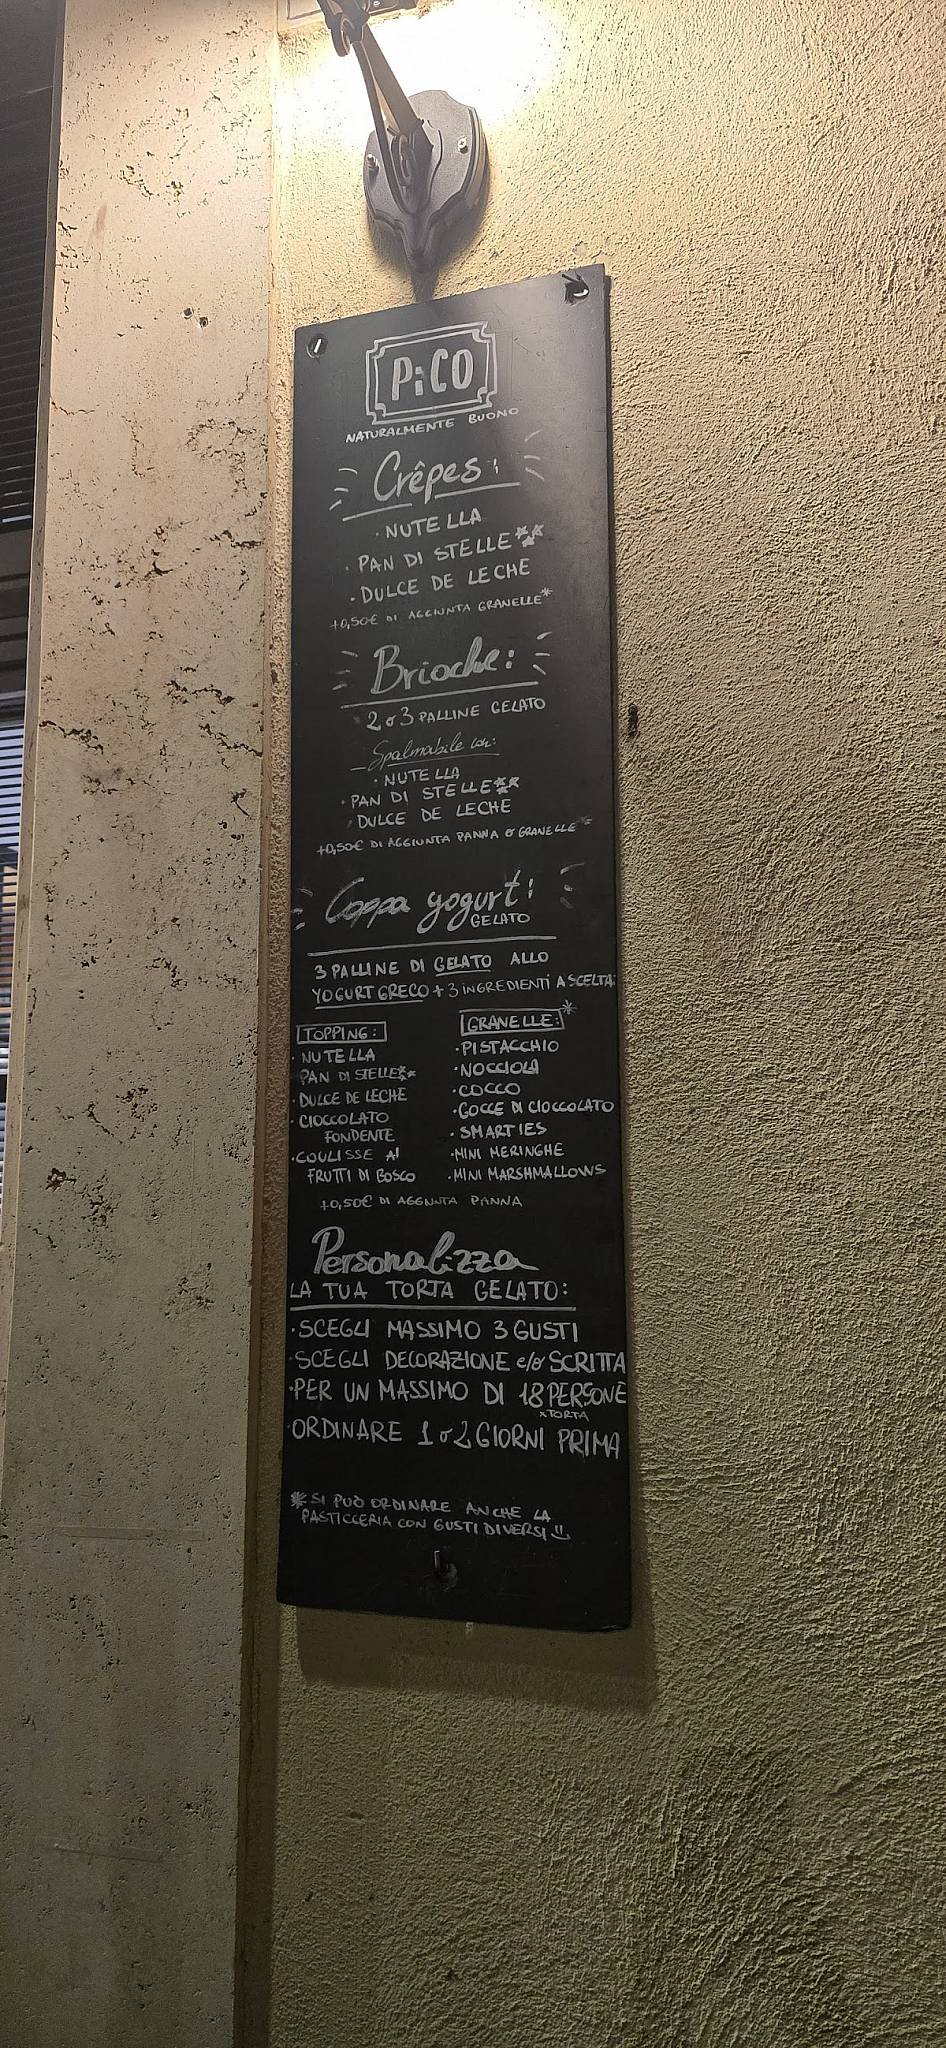 PiCO
NATURALMENTE BUONO
Crêpes:
· NUTELLA
· PAN DI STELLE
· DULCE DE LECHE
+0,50€ DI AGGIUNTA GRANELLE*
Brioche:
2 o 3 PALLINE GELATO
Spalmabile con:
· NUTELLA
· PAN DI STELLE
· DULCE DE LECHE
+0,50€ DI AGGIUNTA PANNA o GRANELLE*
Coppa yogurt:
GELATO
3 PALLINE DI GELATO ALLO
YOGURT GRECO + 3 INGREDIENTI A SCELTA:
TOPPING:
· NUTELLA
PAN DI STELLE
· DULCE DE LECHE
· CIOCCOLATO
FONDENTE
· COULISSE AI
FRUTTI DI BOSCO
GRANELLE:*
· PISTACCHIO
· NOCCIOLA
· COCCO
· GOCCE DI CIOCCOLATO
· SMARTIES
· MINI MERINGHE
· MINI MARSHMALLOWS
+0,50€ DI AGGNUTA PANNA
Personalizza
LA TUA TORTA GELATO:
· SCEGLI MASSIMO 3 GUSTI
· SCEGLI DECORAZIONE e/o SCRITTA
· PER UN MASSIMO DI 18 PERSONE
x TORTA
· ORDINARE 1 o 2 GIORNI PRIMA
* SI PUÒ ORDINARE ANCHE LA
PASTICCERIA CON GUSTI DIVERSI